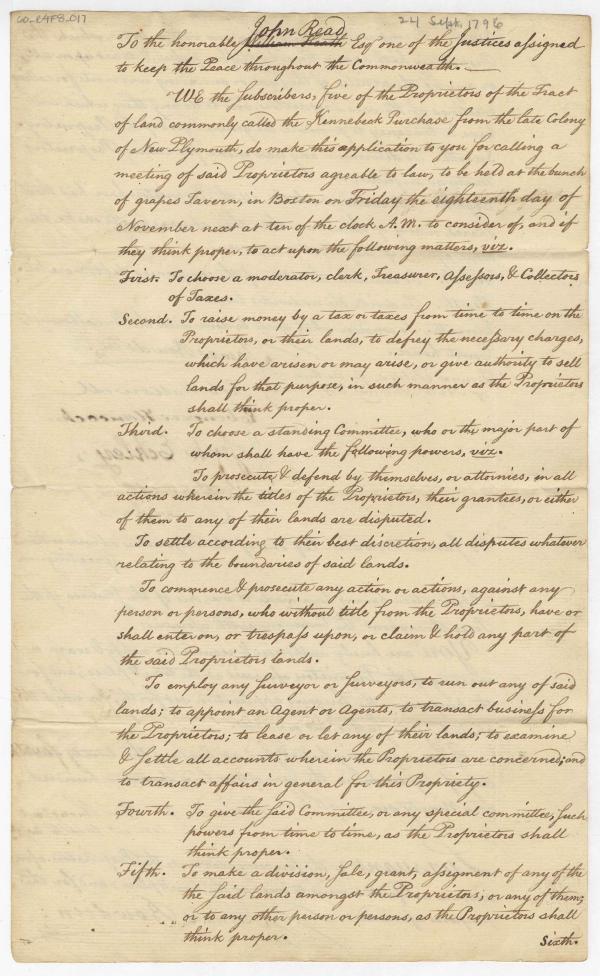 60_R4F8_017
24 Sept. 1796
John Read
To the honorable William Heath Esqr one of the Justices assigned
to keep the Peace throughout the Commonwealth.
WE the Subscribers, five of the Proprietors of the Tract
of land commonly called the Kennebeck Purchase from the late Colony
of New Plymouth, do make this application to you for calling a
meeting of said Proprietors agreable to law, to be held at the bunch
of grapes Tavern, in Boston on Friday the eighteenth day of
November next at ten of the clock A.M. to consider of, and if
they think proper, to act upon the following matters, viz.
First. To choose a moderator, clerk, Treasurer, Assessors, & Collectors
of Taxes.
Second. To raise money by a tax or taxes from time to time on the
Proprietors, or their lands, to defrey the necessary charges,
which have arisen or may arise, or give authority to sell
lands for that purpose, in such manner as the Proprietors
shall think proper.
Third. To choose a standing Committee, who or the major part of
whom shall have the following powers, viz.
To prosecute & defend by themselves, or attornies, in all
actions wherein the titles of the Proprietors, their grantees, or either
of them to any of their lands are disputed.
To settle according to their best discretion, all disputes whatever
relating to the boundaries of said lands.
To commence & prosecute any action or actions, against any
person or persons, who without title from the Proprietors, have or
shall enter on, or trespass upon, or claim & hold any part of
the said Proprietors lands.
To employ any Surveyor or Surveyors, to run out any of said
lands; to appoint an Agent or Agents, to transact business for
the Proprietors; to lease or let any of their lands; to examine
& settle all accounts wherein the Proprietors are concerned; and
to transact affairs in general for this Propriety.
Fourth. To give the said Committee, or any special committee, such
powers from time to time, as the Proprietors shall
think proper.
Fifth. To make a division, sale, grant, assigment of any of the
the said lands amongst the Proprietors, or any of them;
or to any other person or persons, as the Proprietors shall
think proper.
Sixth.